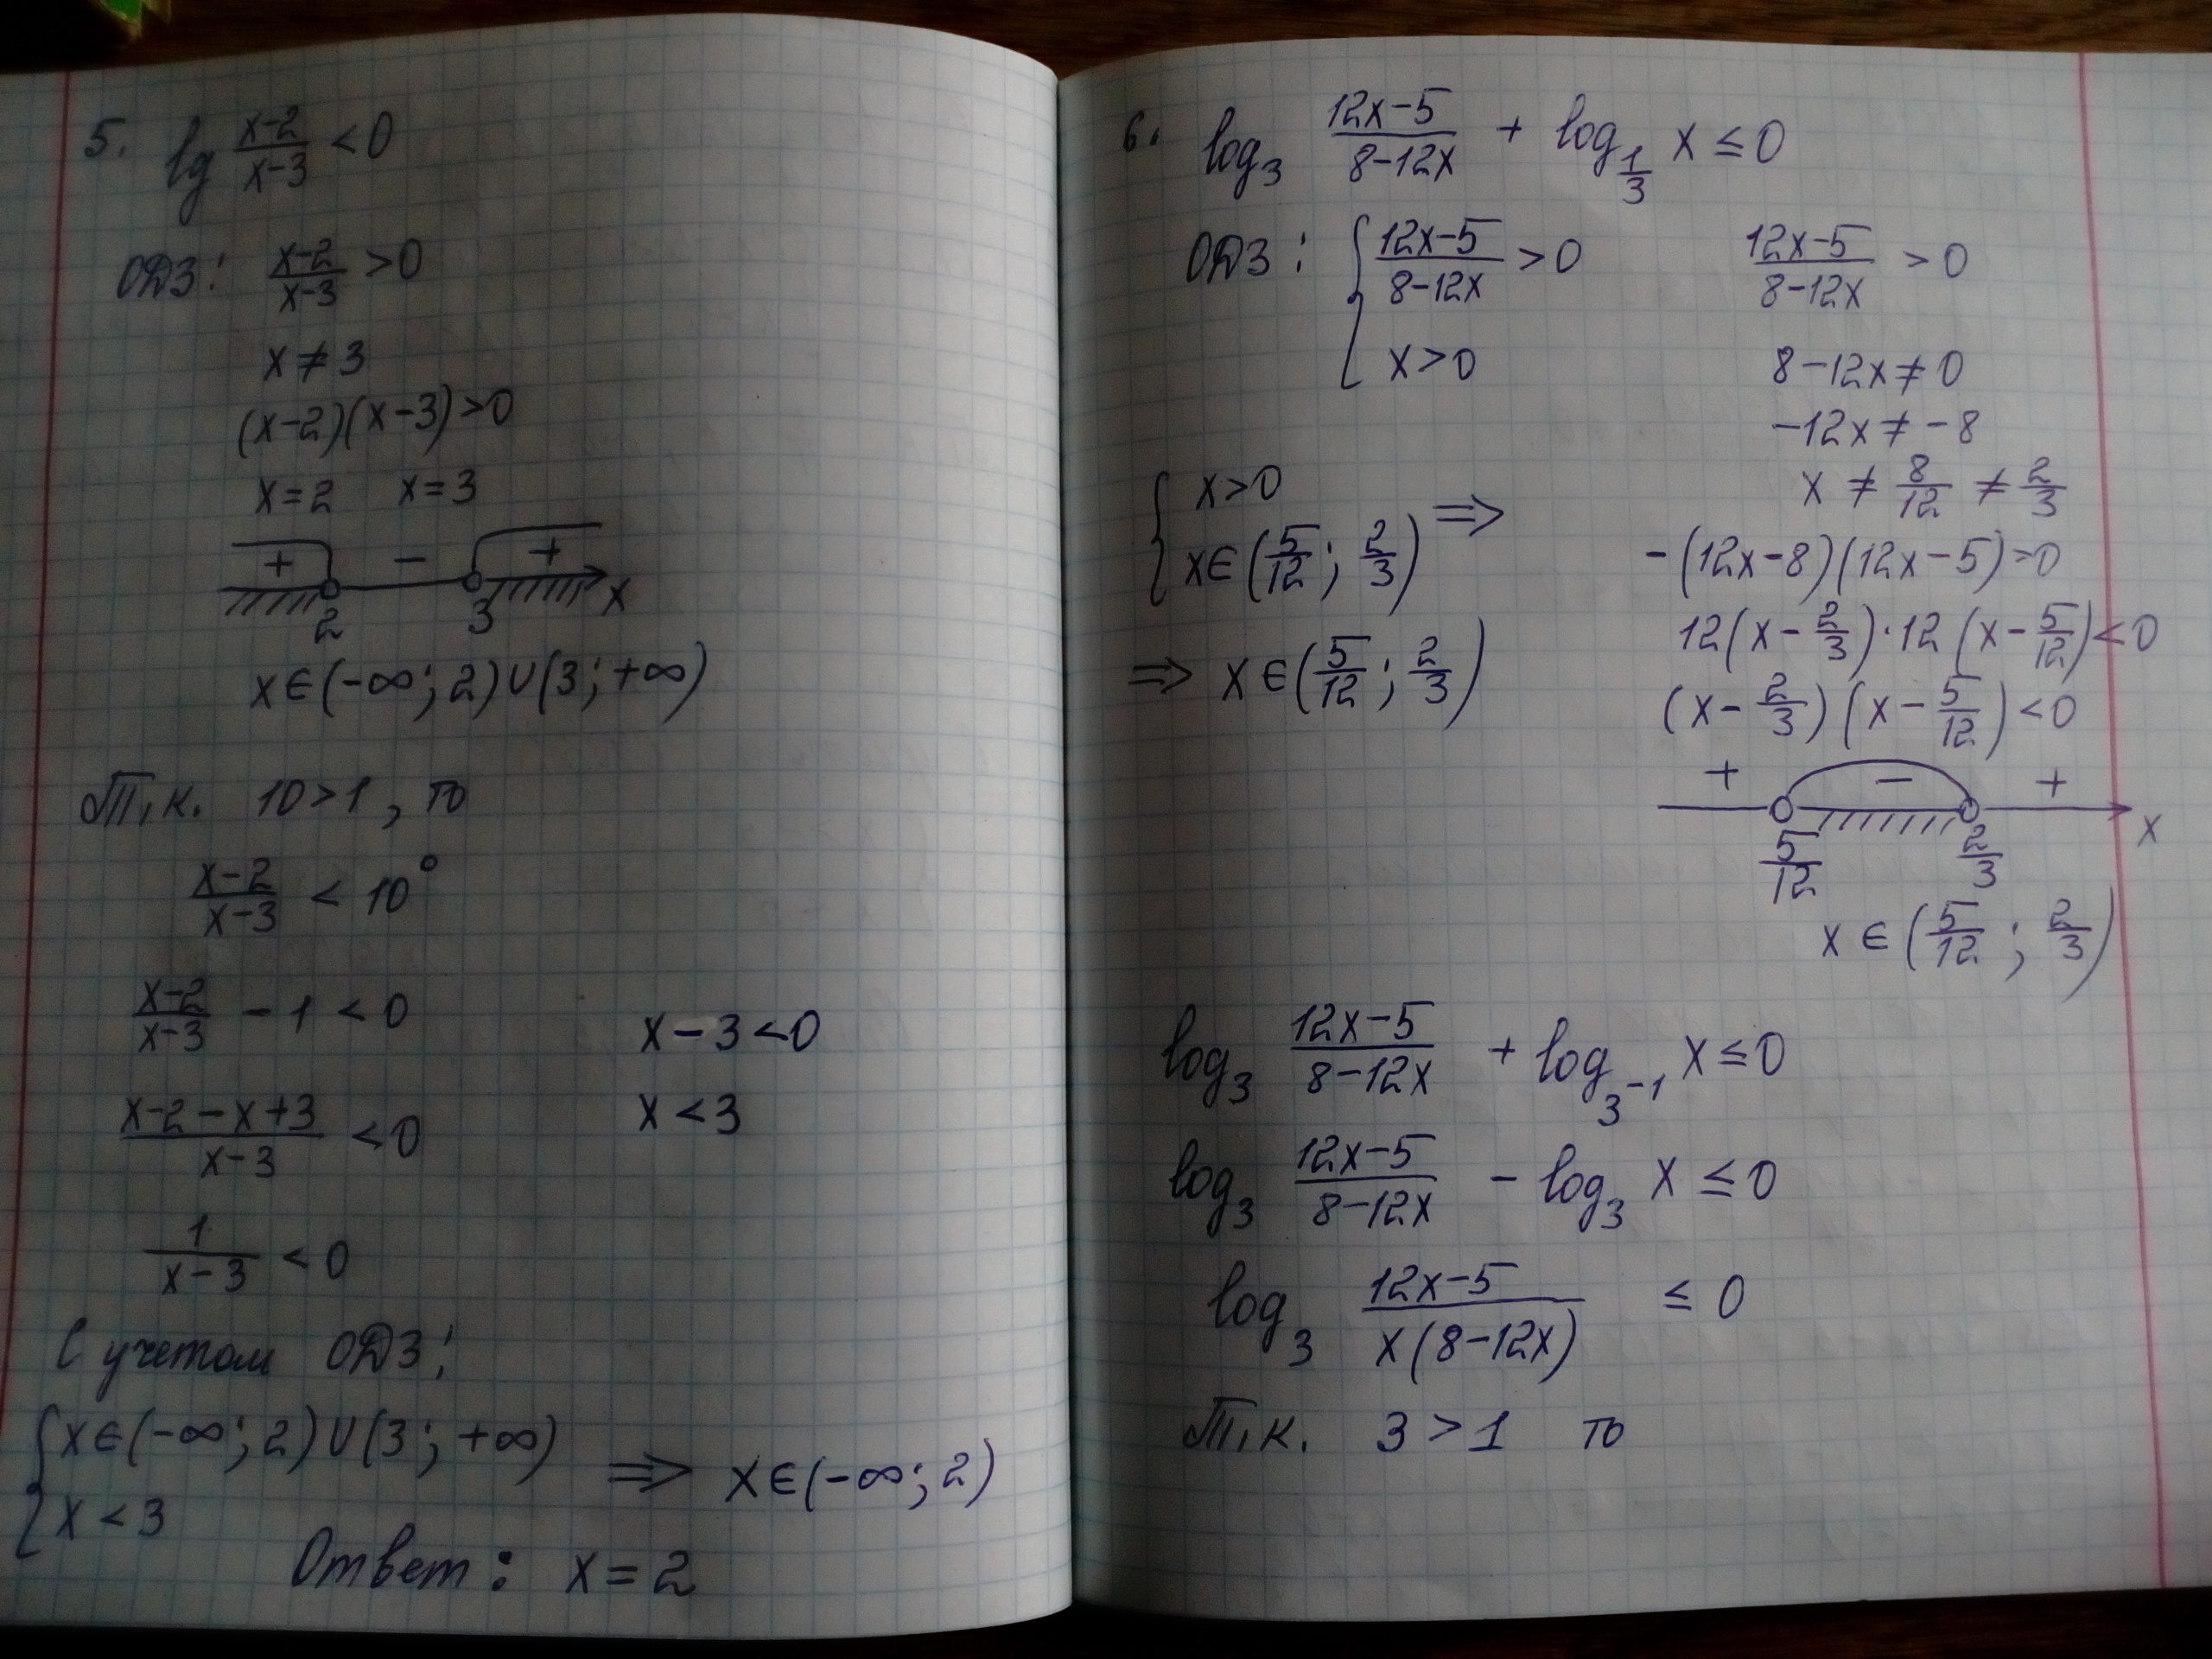 5. lg (x-2)/(x-3) < 0
ОДЗ: (x-2)/(x-3) > 0
x ≠ 3
(x-2)(x-3) > 0
x = 2 x = 3
+ - +
2 3 x
x ∈ (-∞; 2) ∪ (3; +∞)
Т.к. 10 > 1, то
(x-2)/(x-3) < 10⁰
(x-2)/(x-3) - 1 < 0
(x-2-x+3)/(x-3) < 0
1/(x-3) < 0
x - 3 < 0
x < 3
С учетом ОДЗ:
{ x ∈ (-∞; 2) ∪ (3; +∞)
x < 3
⇒ x ∈ (-∞; 2)
Ответ: x = 2
6. log₃ (12x-5)/(8-12x) + log_(1/3) x ≤ 0
ОДЗ: { (12x-5)/(8-12x) > 0
x > 0
(12x-5)/(8-12x) > 0
8-12x ≠ 0
-12x ≠ -8
x ≠ 8/12 ≠ 2/3
-(12x-8)(12x-5) > 0
12(x - 2/3)·12(x - 5/12) < 0
(x - 2/3)(x - 5/12) < 0
+ - +
5/12 2/3 x
x ∈ (5/12; 2/3)
{ x > 0
x ∈ (5/12; 2/3) ⇒
⇒ x ∈ (5/12; 2/3)
log₃ (12x-5)/(8-12x) + log_(3⁻¹) x ≤ 0
log₃ (12x-5)/(8-12x) - log₃ x ≤ 0
log₃ (12x-5)/(x(8-12x)) ≤ 0
Т.к. 3 > 1 то